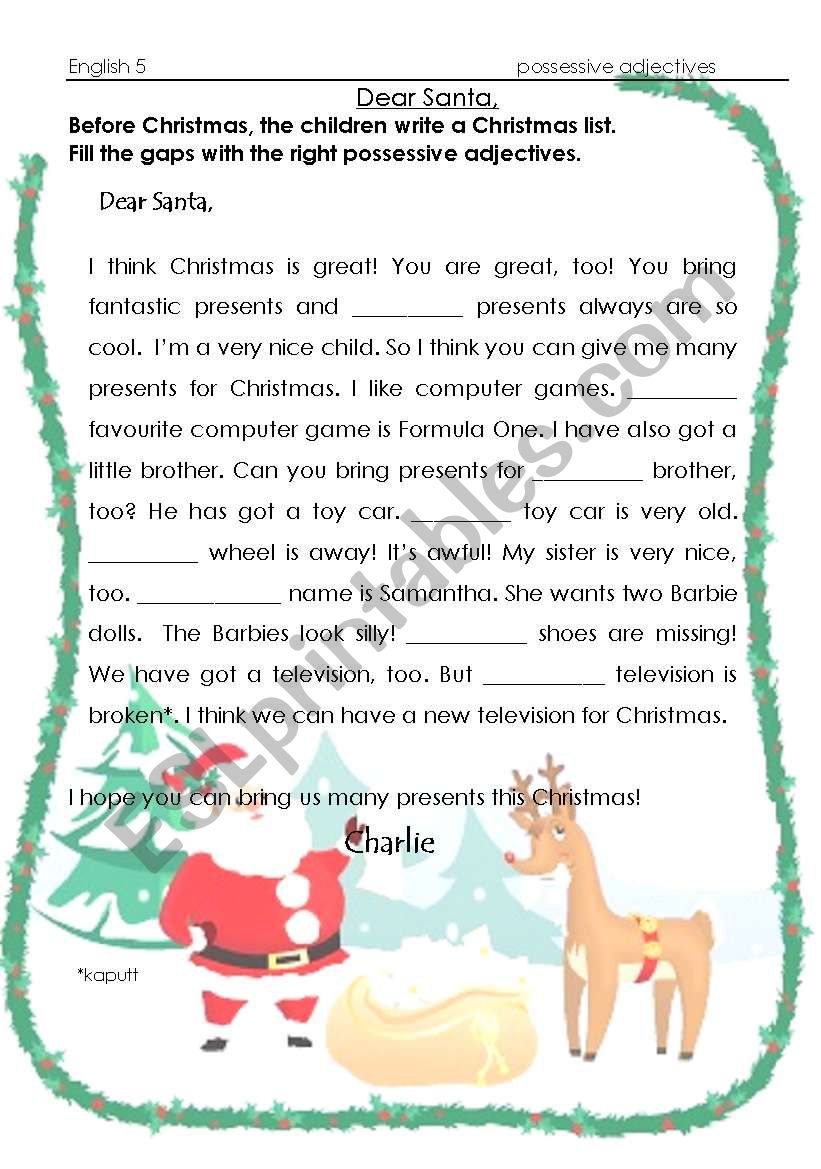 English 5 possessive adjectives
Dear Santa,
Before Christmas, the children write a Christmas list.
Fill the gaps with the right possessive adjectives.
Dear Santa,
I think Christmas is great! You are great, too! You bring
fantastic presents and _________ presents always are so
cool. I'm a very nice child. So I think you can give me many
presents for Christmas. I like computer games. _________
favourite computer game is Formula One. I have also got a
little brother. Can you bring presents for _________ brother,
too? He has got a toy car. ________ toy car is very old.
_________ wheel is away! It's awful! My sister is very nice,
too. ____________ name is Samantha. She wants two Barbie
dolls. The Barbies look silly! __________ shoes are missing!
We have got a television, too. But __________ television is
broken*. I think we can have a new television for Christmas.
I hope you can bring us many presents this Christmas!
Charlie
*kaputt
ESLprintables.com